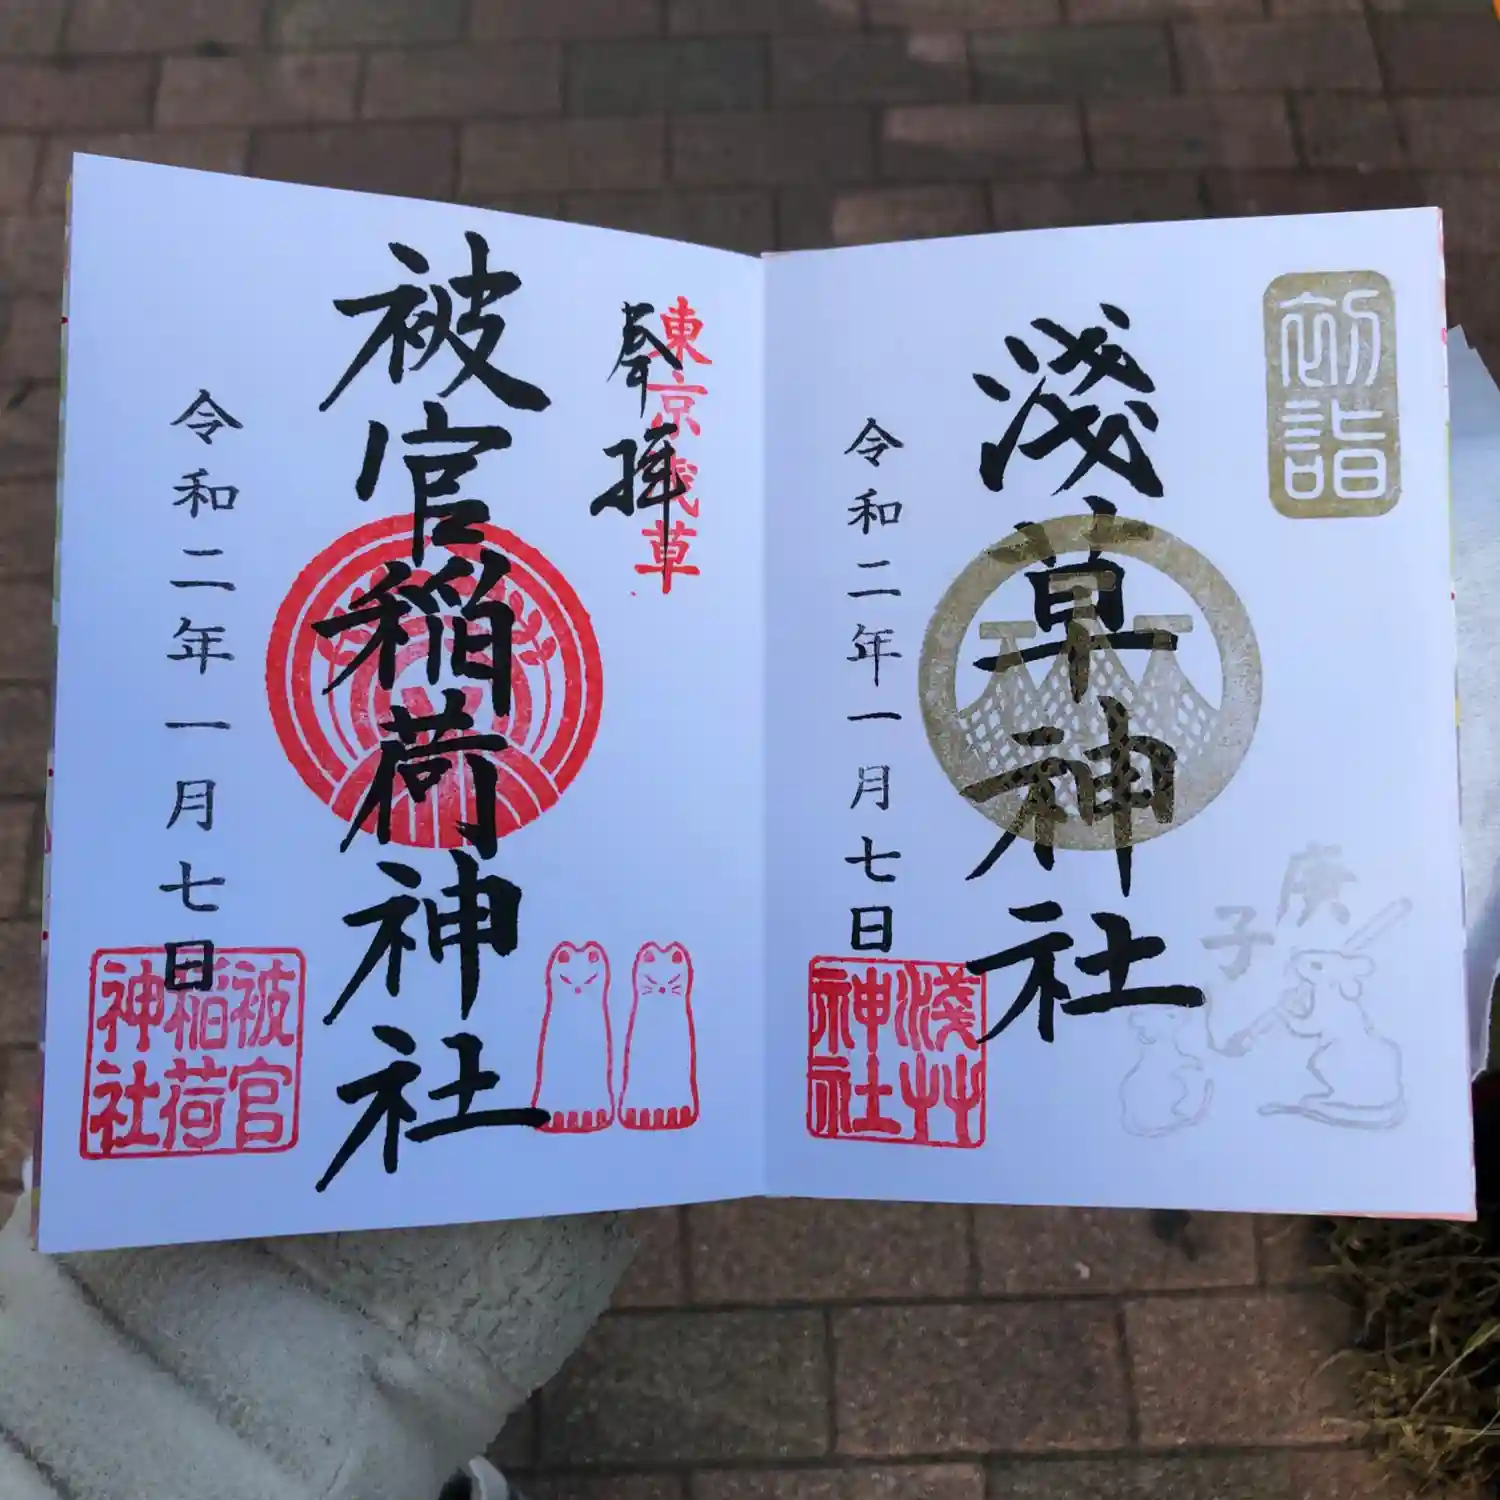 初詣
淺草神社
令和二年一月七日
淺艸
神社
庚
子
東京浅草
奉拝
被官稲荷神社
令和二年一月七日
被官
稲荷
神社